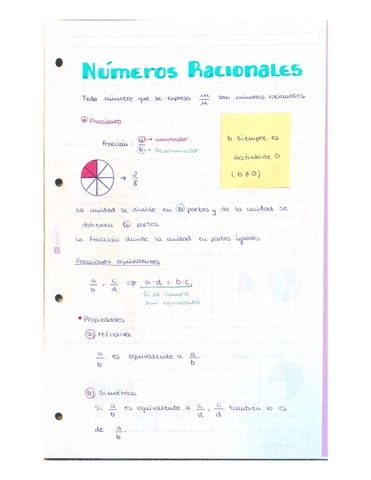 Números Racionales
Todo número que se expresa m/n son números racionales.
Fracciones
Fracción: a → numerador
b → denominador
b siempre es
distinto de 0
(b ≠ 0)
→ 2/8
La unidad se divide en b partes y de la unidad se
obtienen a partes.
La fracción divide la unidad en partes iguales
Fracciones equivalentes
a/b , c/d ⇒ a·d = b·c,
Si se cumple
son equivalentes
• Propiedades
a) reflexiva
a/b es equivalente a a/b.
b) Simétrica
Si a/b es equivalente a c/d, c/d también lo es
de a/b.